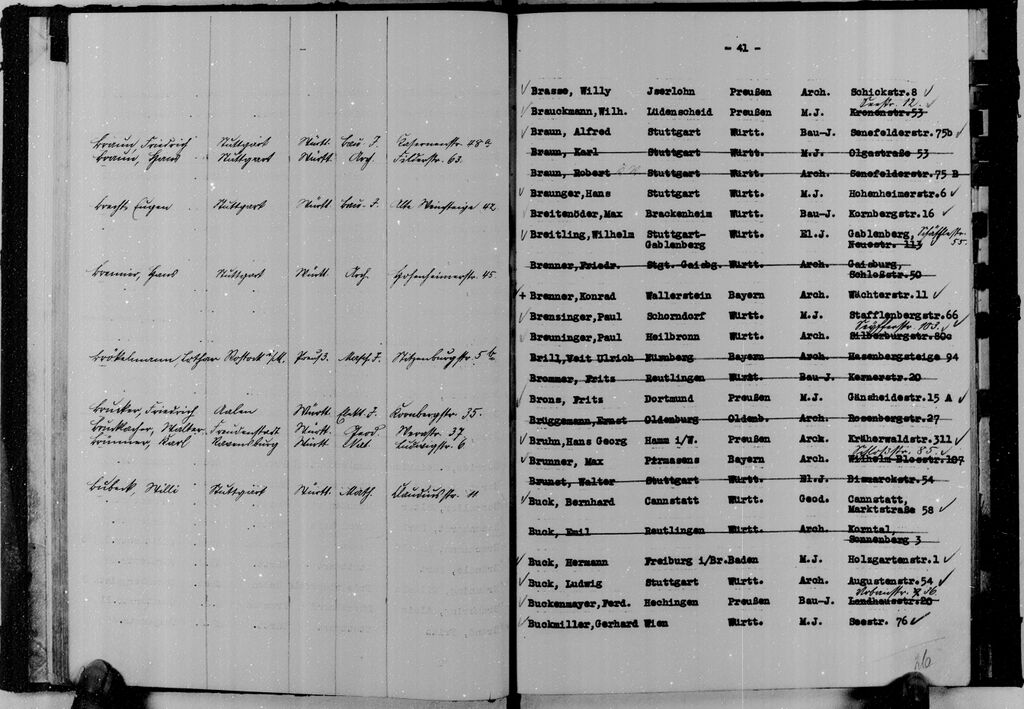 Braun, Friedrich Stuttgart Württ. Bau-J. Kasernenstr. 48a
Braun, Hans Stuttgart Württ. Arch. Filderstr. 63.
Brecht, Eugen Stuttgart Württ. Bau-J. Alte Weinsteige 42
Brenner, Hans Stuttgart Württ. Arch. Hohenheimerstr. 45
Brökelmann, Lothar Rostock i/M. Preuß. Masch.J. Stitzenburgstr. 5
Brucker, Friedrich Aalen Württ. Elekt.J. Kornbergstr. 35.
Bruckacher, Walter Freudenstadt Württ. Geod. Werastr. 37
Brunner, Karl Ravensburg Württ. Ludwigstr. 6
Bubeck, Willi Stuttgart Württ. Math. Claudiusstr. 11
- 41 -
Brasse, Willy Jserlohn Preußen Arch. Schickstr.8
Seestr. 12.
Brauckmann,Wilh. Lüdenscheid Preußen M.J. Kronenstr.53
Braun, Alfred Stuttgart Württ. Bau-J. Senefelderstr.75b
Braun, Karl Stuttgart Württ. M.J. Olgastraße 53
Braun, Robert Stuttgart Württ. Arch. Senefelderstr.75 B
Braunger,Hans Stuttgart Württ. M.J. Hohenheimerstr.6
Breitenöder,Max Brackenheim Württ. Bau-J. Kornbergstr.16
Breitling,Wilhelm Stuttgart- Württ. El.J. Gablenberg, Schäfflestr.
Gablenberg Neuestr. 113 55.
Brenner,Friedr. Stgt.Gaisbg. Württ. Arch. Gaisburg,
Schloßstr.50
+ Brenner,Konrad Wallerstein Bayern Arch. Wächterstr.11
Brensinger,Paul Schorndorf Württ. M.J. Stafflenbergstr.66
Seyfferstr. 103.
Breuninger,Paul Heilbronn Württ. Arch. Silberburgstr.80c
Brill,Veit Ulrich Nürnberg Bayern Arch. Hasenbergsteige 94
Brommer, Fritz Reutlingen Württ. Bau-J. Kernerstr.20
Brons, Fritz Dortmund Preußen M.J. Gänsheidestr.15 A
Brüggemann,Ernst Oldenburg Oldenb. Arch. Rosenbergstr.27
Bruhn,Hans Georg Hamm i/W. Preußen Arch. Kräherwaldstr.311
Schloßstr. 85.
Brunner, Max Pirmasens Bayern Arch. Wilhelm Blosstr.107
Brunst, Walter Stuttgart Württ. El.J. Bismarckstr.54
Buck, Bernhard Cannstatt Württ. Geod. Cannstatt,
Marktstraße 58
Buck, Emil Reutlingen Württ. Arch. Korntal
Sonnenberg 3
Buck, Hermann Freiburg i/Br.Baden M.J. Holzgartenstr.1
Buck, Ludwig Stuttgart Württ. Arch. Augustenstr.54
Urbanstr. 36
Buckenmayer,Ferd. Hechingen Preußen Bau-J. Landhausstr.20
Buckmiller,Gerhard Wien Württ. M.J. Seestr. 76